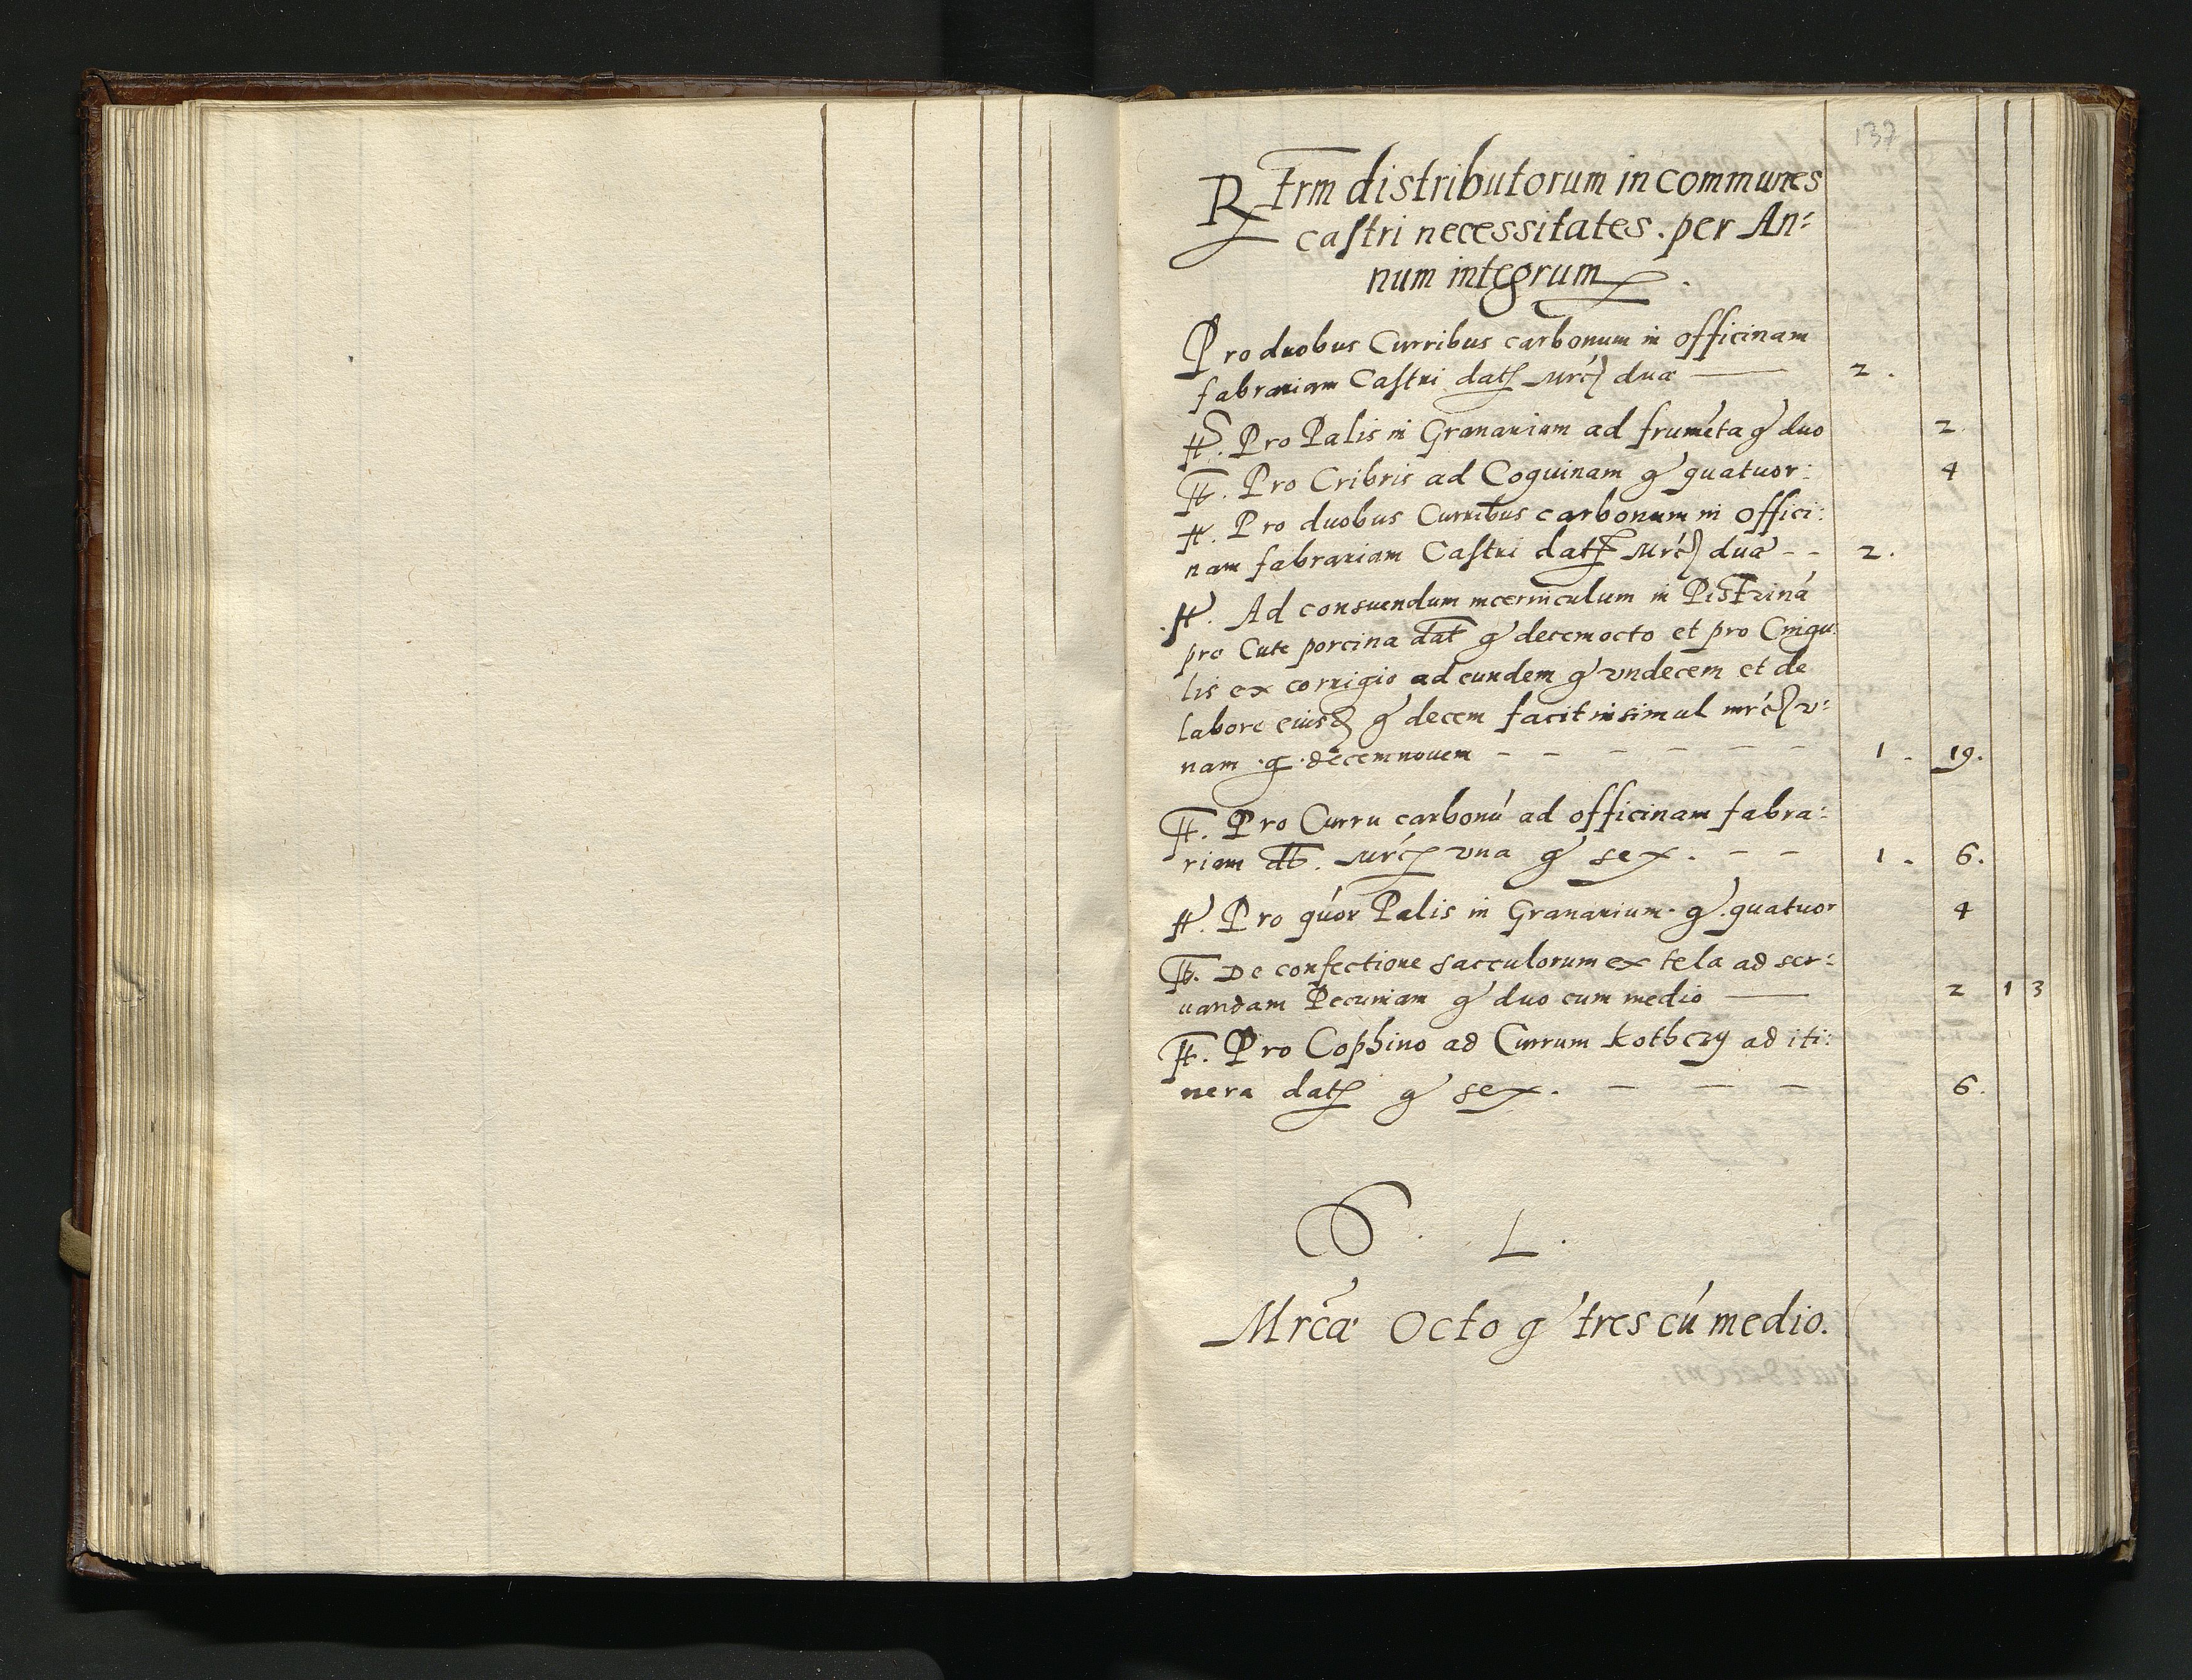 137
Rx Irm distributorum in communes
castri necessitates. per An:
num integrum.
Pro duobus Curribus carbonum in officinam
fabrariam Castri dat Mrc dua — 2.
It. Pro Palis in Granarium ad fruméta g duo 2
It. Pro Cribris ad Coquinam g quatuor: 4
It. Pro duobus Curribus carbonum in offici:
nam fabrariam Castri dat Mrc dua - - 2.
It. Ad consuendum incerniculum in Pistriná
pro Cute porcina dat g decemocto et pro Cingu
lis ex corrigio ad eundem g undecem et de
labore eius g decem facit insimul mrc v:
nam .g. decemnouem - - - - - - 1. 19.
It. Pro Curru carbonú ad officinam fabra:
riam dt. Mrc vna g sex. - - 1. 6.
It. Pro qúor Palis in Granarium. g. quatuor 4
It. De confectione sacculorum ex tela ad ser:
uandam Pecuniam g duo cum medio — 2 1 3
It. Pro Cophino ad Currum Kothczy ad iti:
nera dat g sex. - - - 6.
L.
Mrca Octo g tres cú medio.